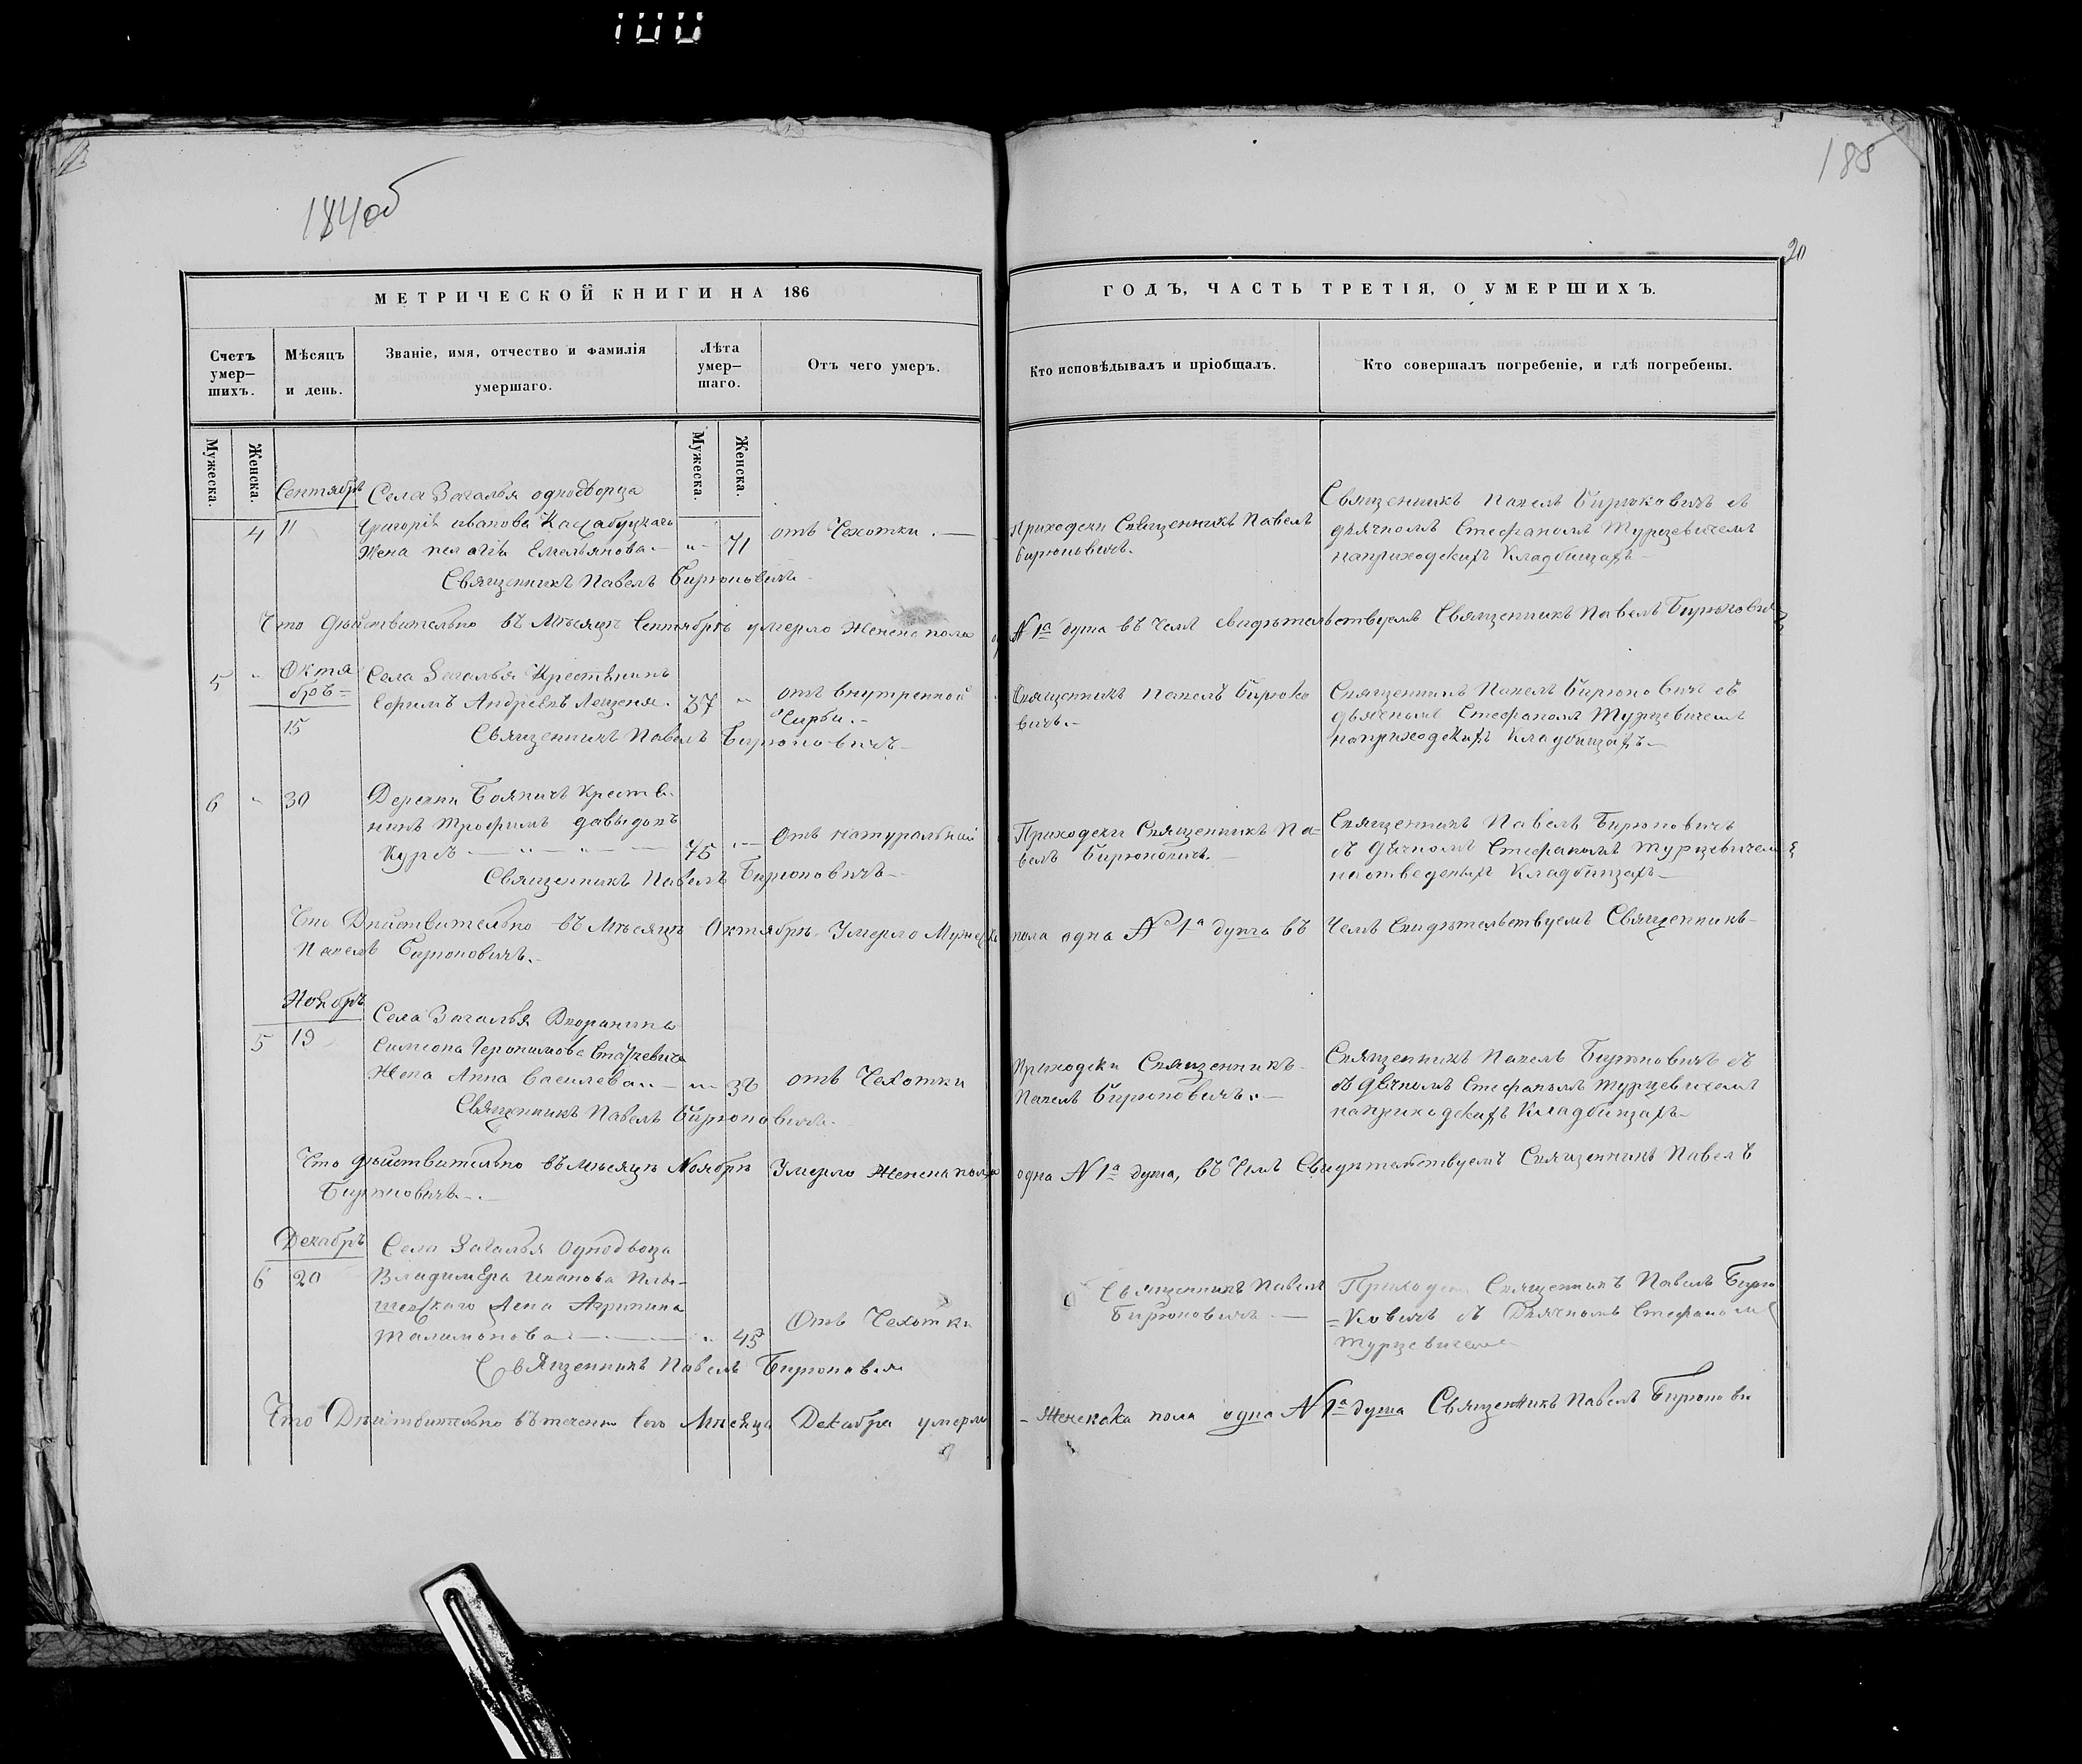 184об
188
20
МЕТРИЧЕСКОЙ КНИГИ НА 186
ГОДЪ, ЧАСТЬ ТРЕТІЯ, О УМЕРШИХЪ.
Счетъ умер—шихъ.
Мѣсяцъ и день.
Званіе, имя, отчество и фамилія умершаго.
Лѣта умер—шаго.
Отъ чего умеръ.
Кто исповѣдывалъ и пріобщалъ.
Кто совершалъ погребеніе, и гдѣ погребены.
Мужеска.
Женска.
Мужеска.
Женска.
Сентябрь
Села Загалья однодворца
4 11 Григорія Иванова
Жена Емельянова
71
отъ Чехотки
Священникъ Павелъ Бирюковичъ
Приходски Священникъ Павелъ
Бирюковичъ.
Священникъ Павелъ Бирюковичъ съ
дьячкомъ Стефаномъ Турцевичемъ
наприходскихъ Кладбищахъ
Что дѣйствительно въ Мѣсяцѣ Сентябрѣ умерло Женска пола
№ 1а душа въ чемъ свидѣтельствуемъ Священникъ Павелъ Бирюкович
5 Октя
брь
15
Села Загалья Крестьянинъ
Андріевъ Лещеня
37
отъ внутренной
Священникъ Павелъ Бирюковичъ
Священникъ Павелъ Бирюко
вичъ.
Священникъ Павелъ Бирюковичъ съ
дьячкомъ Стефаномъ Турцевичемъ
наприходскихъ Кладбищахъ
6 30 Деревни Крестья
нинъ Трофимъ Давыдовъ
Курсъ
75
Отъ натуральной
Священникъ Павелъ Бирюковичъ
Приходски Священникъ Па=
велъ Бирюковичъ.
Священникъ Павелъ Бирюковичъ
съ дьячкомъ Стефаномъ Турцевичемъ
наотведеныхъ Кладбищахъ
Что Дѣйствительно въ Мѣсяцѣ Октябрѣ Умерло
пола одна № 1а душа въ Чемъ Свидѣтельствуемъ Священникъ
Павелъ Бирюковичъ.
Ноябрь
Села Загалья Дворянина
5 19 Симеона Іеронимова
Жена Анна Василева
отъ Чехотки
Священникъ Павелъ Бирюковичъ
Приходски Священникъ
Павелъ Бирюковичъ.
Священникъ Павелъ Бирюковичъ съ
съ дьячкомъ Стефаномъ Турцевичемъ
наприходскихъ Кладбищахъ
Что дѣйствительно въ Мѣсяцѣ Ноябрѣ Умерло Женска пола
одна № 1а душа, въ Чемъ Свидѣтельствуемъ Священникъ Павелъ
Бирюковичъ.
Декабрь
Села Загалья Однодвоца
6 20 Владимера Иванова
Агрипина
45
Отъ Чехотки
Священникъ Павелъ
Священникъ Павелъ
Бирюковичъ
Священникъ Павелъ Бирю
=ковичъ съ Дьячкомъ Стефаномъ
Турцевичемъ
Что Дѣйтвительно втеченіи Сего Мѣсяца Декабра умерло
Женскаа пола одна № 1а душа Священникъ Павелъ